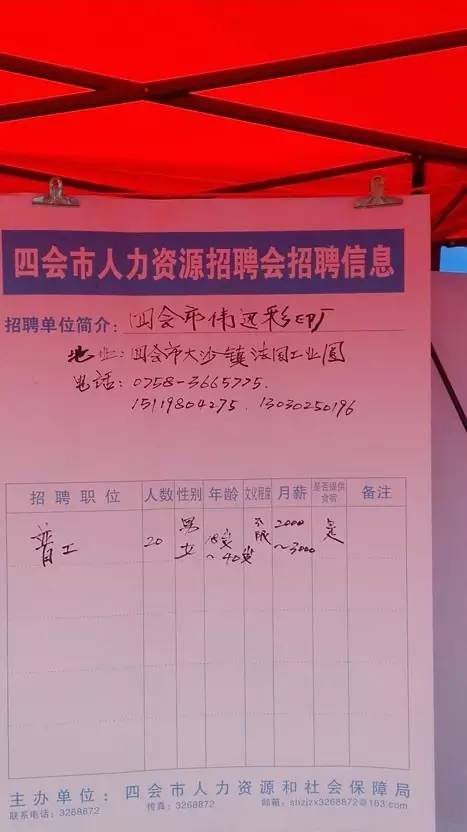 四会市人力资源招聘会招聘信息
招聘单位简介：四会市伟远彩印厂
地址：四会市大沙镇法国工业园
电话：0758-3665775.
15119804275. 13030250196
招聘职位 人数 性别 年龄 文化程度 月薪 是否提供食宿 备注
普工 20 男女 18岁～40岁 不限 2000～3000 是
主办单位：四会市人力资源和社会保障局
联系电话：3268872 传真：3268872 邮箱：shzjzx3268872@163.com